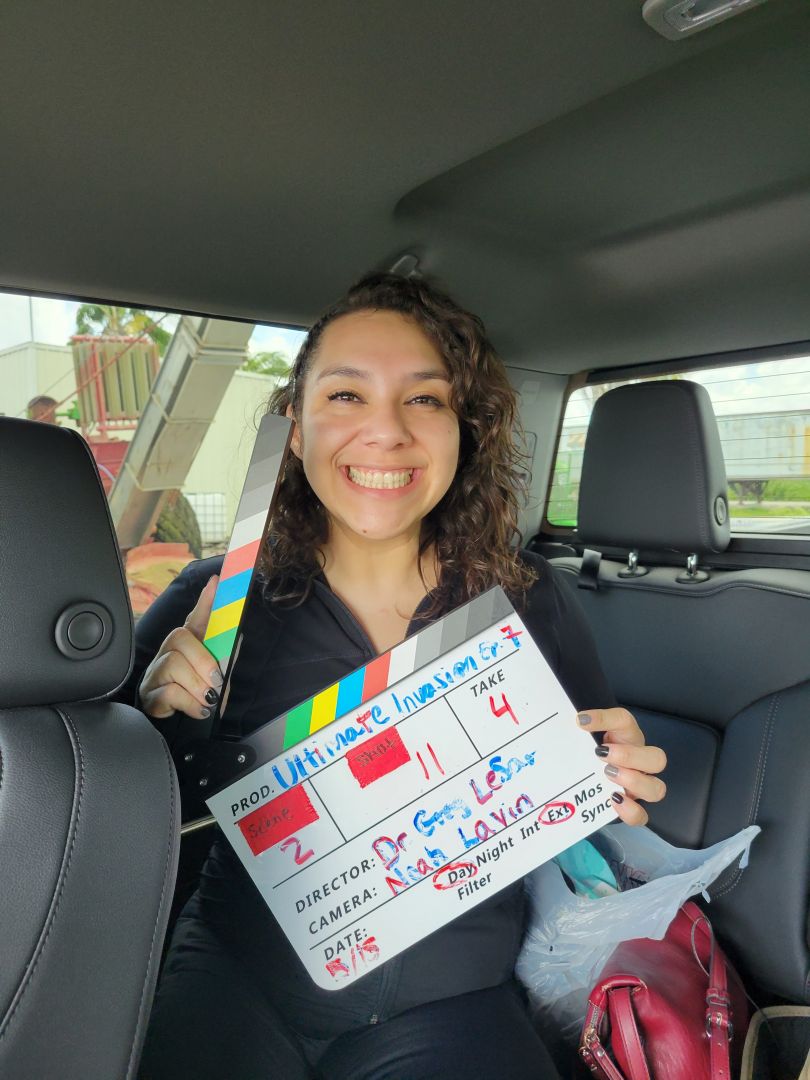 PROD. Ultimate Invasion Ep. 7
Scene 2 Shot 11 TAKE 4
DIRECTOR: Dr Greg LeSar
CAMERA: Noah Lavin
Day Night Int Ext Mos
Filter Sync
DATE: 5/15